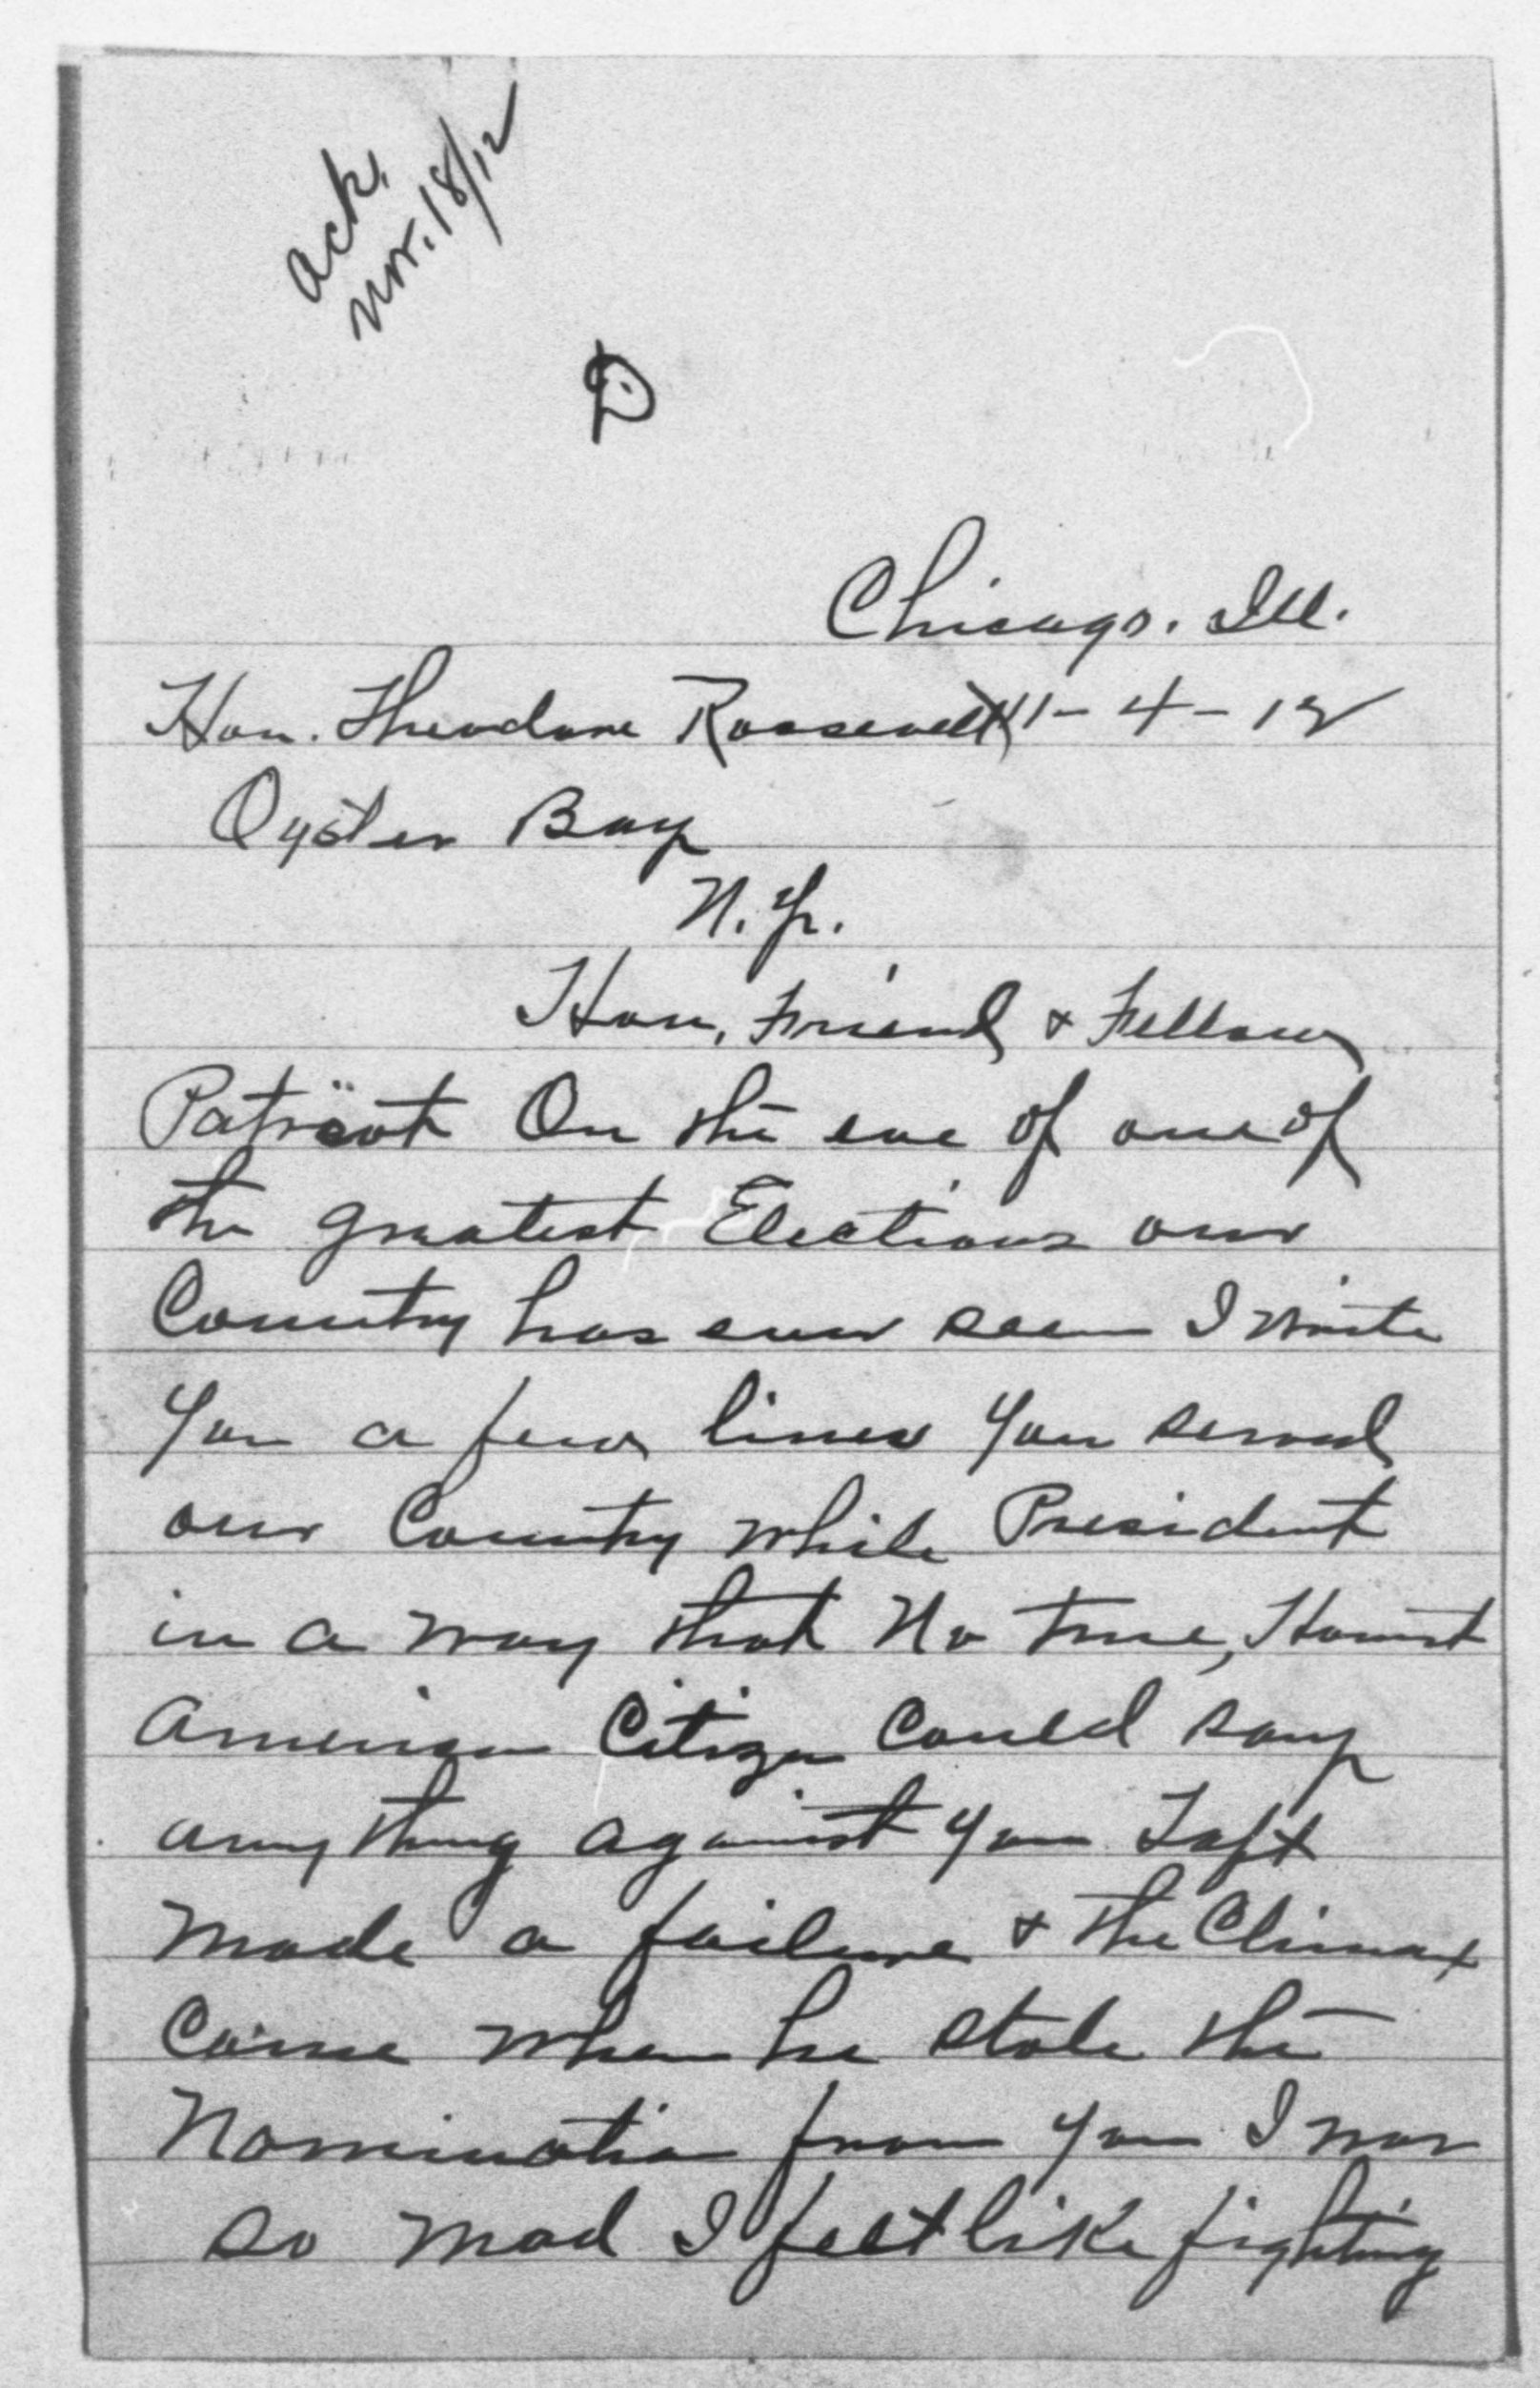 ack.
Nov. 18/12
D
Chicago. Ill.
Hon. Theodore Roosevelt 11-4-12
Oyster Bay
N.Y.
Hon. Friend & Fellow
Patriot On the eve of one of
the greatest Elections our
Country has ever seen I write
You a few lines You served
our Country while President
in a way that No true, Honest
American Citizen Could say
any thing against you Taft
made a failure & the Climax
Came when he stole the
Nomination from you I was
so mad I felt like fighting